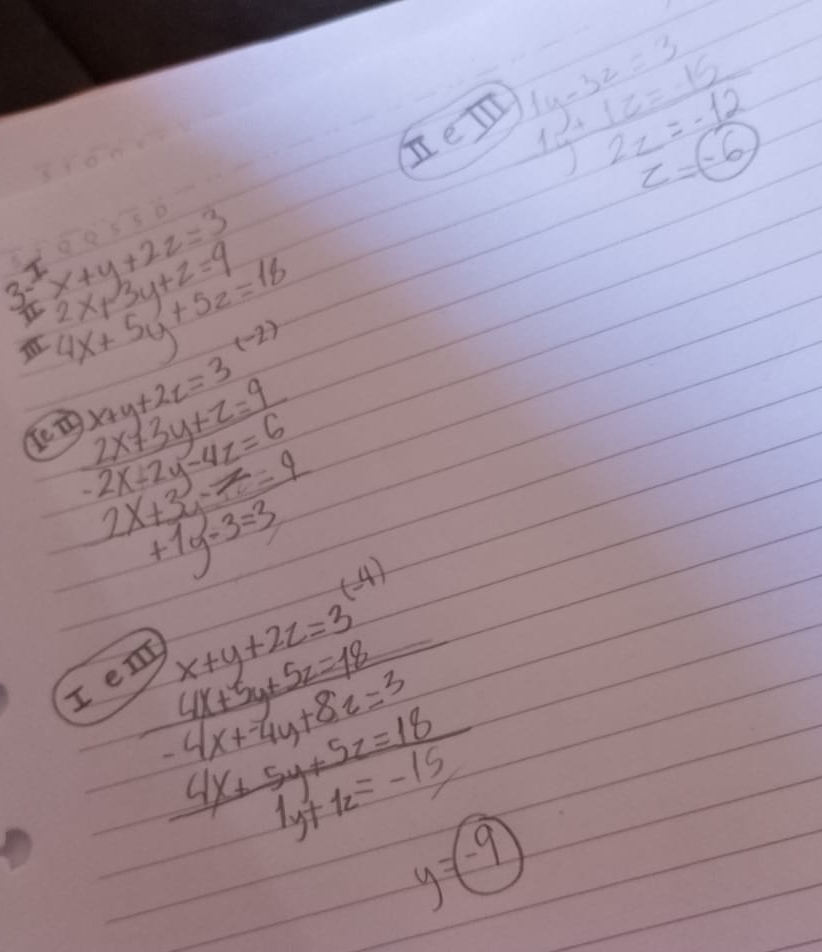 3- I x+y+2z=3
II 2x+3y+z=9
III 4x+5y+5z=18
I e II x+y+2z=3 (-2)
2x+3y+z=9
-2x-2y-4z=6
2x+3y-z=9
+1y-3=3
I e III x+y+2z=3 (-4)
4x+5y+5z=18
-4x+-4y+8z=3
4x+5y+5z=18
1y+1z=-15
y=-9
II e III 1y-3z=3
1y+1z=-15
2z=-12
z=-6